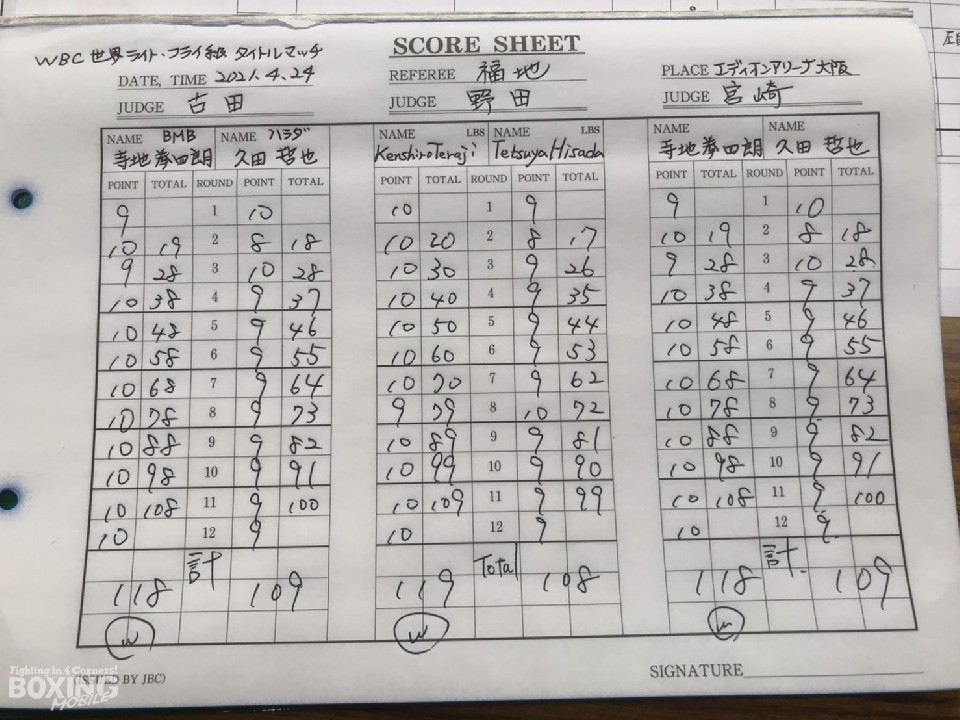 SCORE SHEET
WBC 世界ライト・フライ級 タイトルマッチ
DATE, TIME 2021.4.24 REFEREE 福地 PLACE エディオンアリーナ大阪
JUDGE 古田 JUDGE 野田 JUDGE 宮崎
NAME BMB NAME ハラダ NAME LBS NAME LBS NAME NAME
寺地 拳四朗 久田 哲也 Kenshiro Teraji Tetsuya Hisada 寺地 拳四朗 久田 哲也
POINT TOTAL ROUND POINT TOTAL POINT TOTAL ROUND POINT TOTAL POINT TOTAL ROUND POINT TOTAL
9 1 10 10 1 9 9 1 10
10 19 2 8 18 10 20 2 8 17 10 19 2 8 18
9 28 3 10 28 10 30 3 9 26 9 28 3 10 28
10 38 4 9 37 10 40 4 9 35 10 38 4 9 37
10 48 5 9 46 10 50 5 9 44 10 48 5 9 46
10 58 6 9 55 10 60 6 9 53 10 58 6 9 55
10 68 7 9 64 10 70 7 9 62 10 68 7 9 64
10 78 8 9 73 9 79 8 10 72 10 78 8 9 73
10 88 9 9 82 10 89 9 9 81 10 88 9 9 82
10 98 10 9 91 10 99 10 9 90 10 98 10 9 91
10 108 11 9 100 10 109 11 9 99 10 108 11 9 100
10 12 9 10 12 9 10 12 9
118 計 109 119 Total 108 118 計 109
W W W
SIGNATURE
Fighting in 4 Corners!
BOXING
MOBILE
BY JBC)